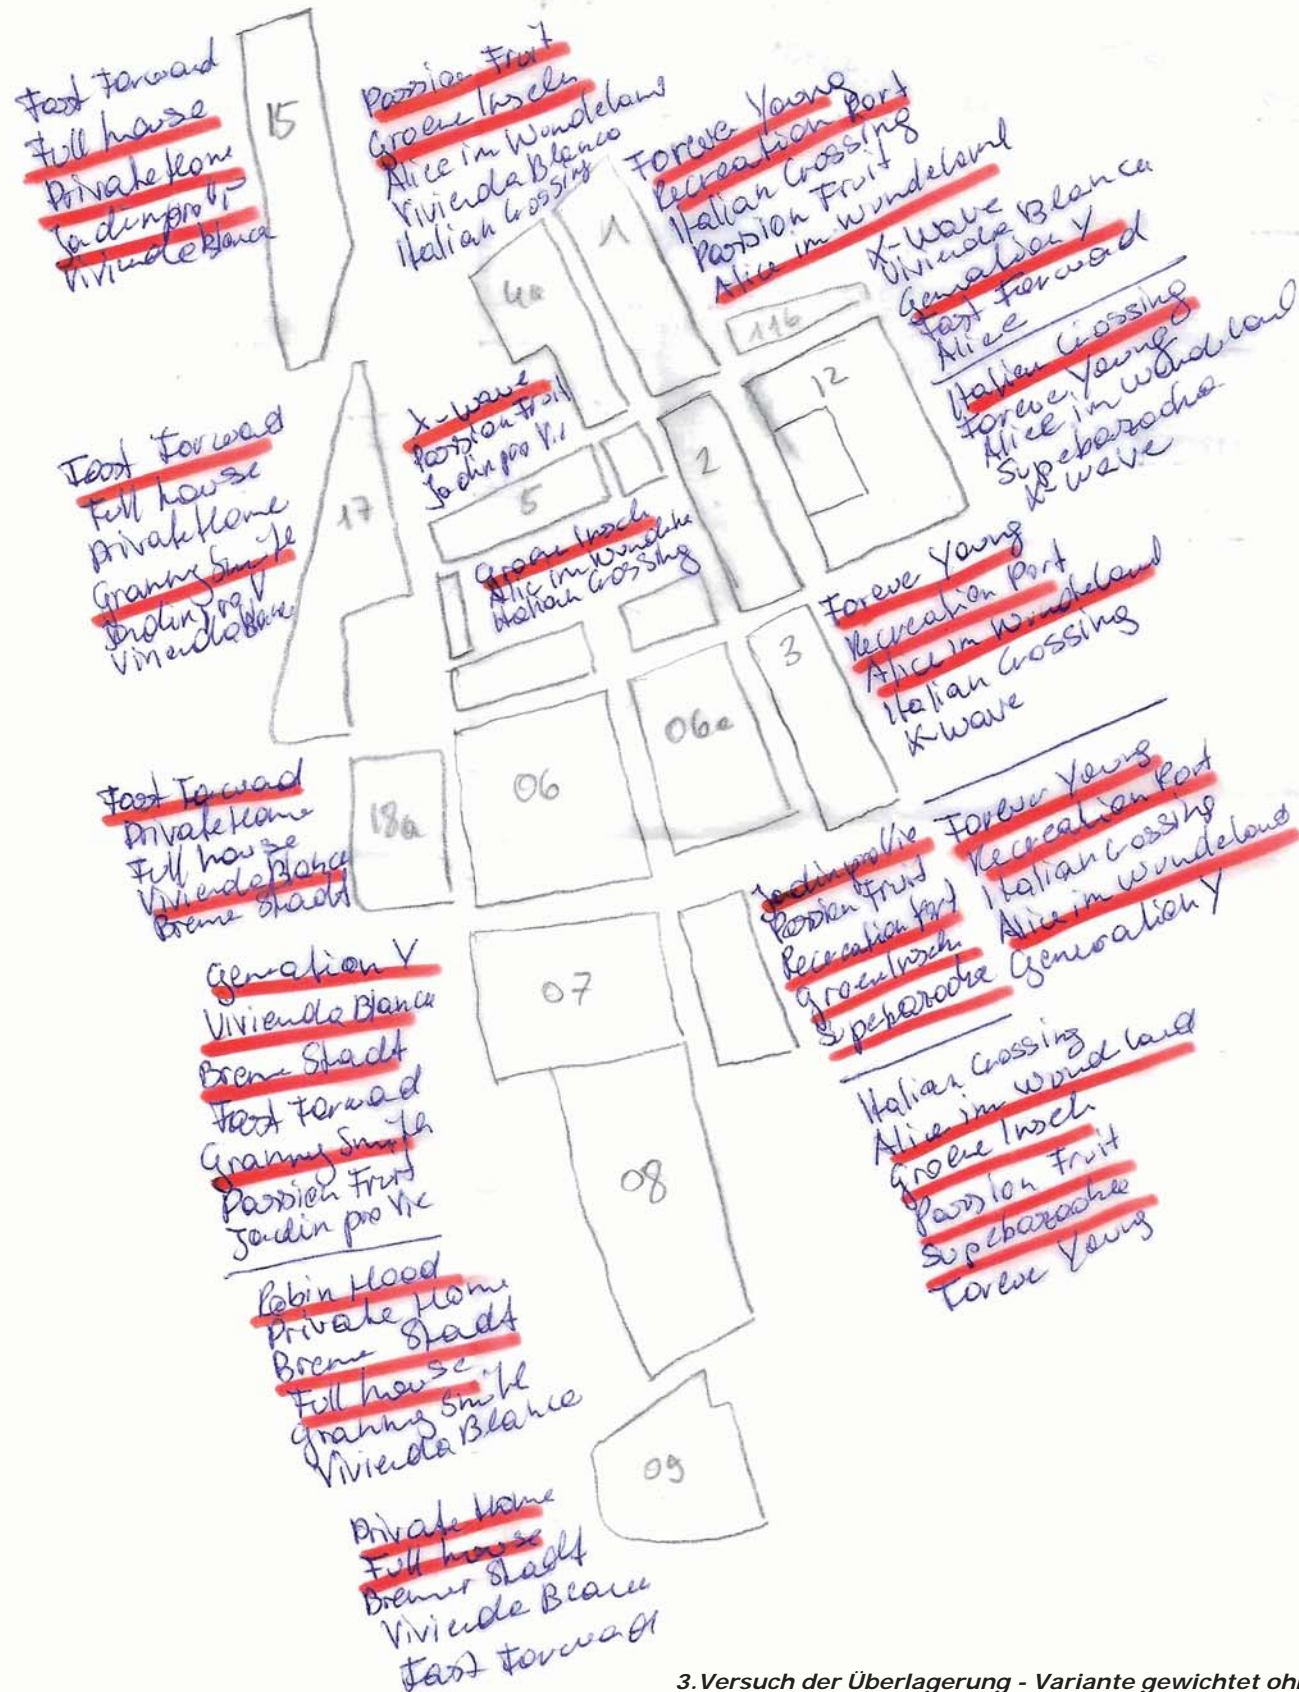 Fast Forward
Full house
Private Home
Vivienda Blanca
15
Passion Fruit
Groene Inseln
Alice im Wundeland
Vivienda Blanca
Italian Crossing
Forever Young
Recreation Port
Italian Crossing
Passion Fruit
Alice im Wundeland
X-Wave
Vivienda Blanca
Genration Y
Fast Forward
Alice
Italian Crossing
Foreve Young
Alice im Wundeland
Supebazooka
X-wave
1
4a
11b
12
2
X-wave
Passion Fruit
Jadin pro Vie
5
Fast Forward
Full house
Private Home
Granny Smith
Vivienda Blanca
17
Groene Insel
Alice im Wundela
Italian Crossing
Foreve Young
Recreation Port
Alice im Wundeland
Italian Crossing
X-wave
3
06a
06
18a
Fast Forward
Private Home
Full house
Vivienda Blanca
Breme Stadt
Forever Young
Recreation Port
Italian Crossing
Alice im Wundeland
Generation Y
Jadin pro Vie
Passion Fruit
Recreation Port
Groene Inseln
Supebazooka
07
Genration Y
Vivienda Blanca
Breme Stadt
Fast Forward
Granny Smith
Passion Fruit
Jadin pro Vie
Italian Crossing
Alice im Wundland
Groene Inseln
Passion Fruit
Supebazooka
Foreve Young
08
Robin Hood
Private Home
Breme Stadt
Full house
Granny Smith
Vivienda Blanca
09
Private Home
Full house
Bremer Stadt
Vivienda Blanca
Fast Forward
3.Versuch der Überlagerung - Variante gewichtet oh